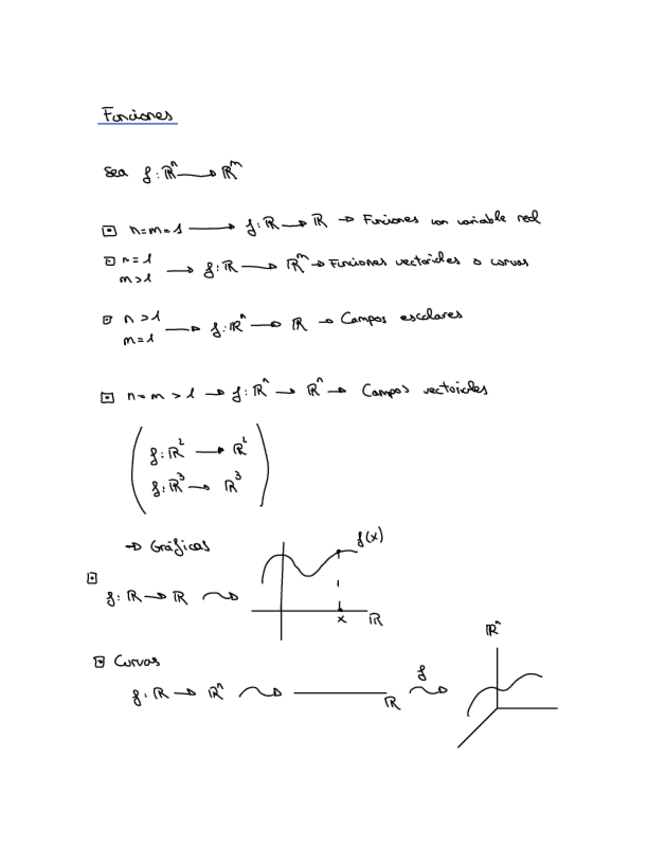 Funciones
Sea f: ℝⁿ → ℝᵐ
⊡ n=m=1 → f: ℝ → ℝ → Funciones con variable real
⊡ n=1
m>1 → f: ℝ → ℝᵐ → Funciones vectoriales o curvas
⊡ n>1
m=1 → f: ℝⁿ → ℝ → Campos escalares
⊡ n=m>1 → f: ℝⁿ → ℝⁿ → Campos vectoriales
f: ℝ² → ℝ²
f: ℝ³ → ℝ³
→ Gráficas
f(x)
⊡
f: ℝ → ℝ
x ℝ
ℝⁿ
⊡ Curvas
f: ℝ → ℝⁿ ℝ f